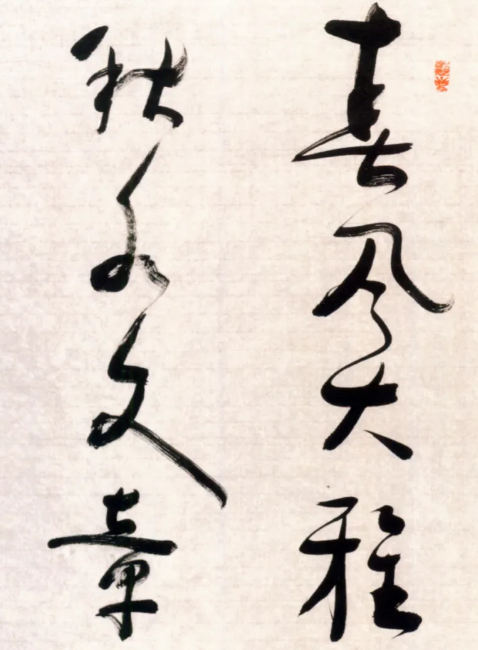 春风大雅
秋水文章